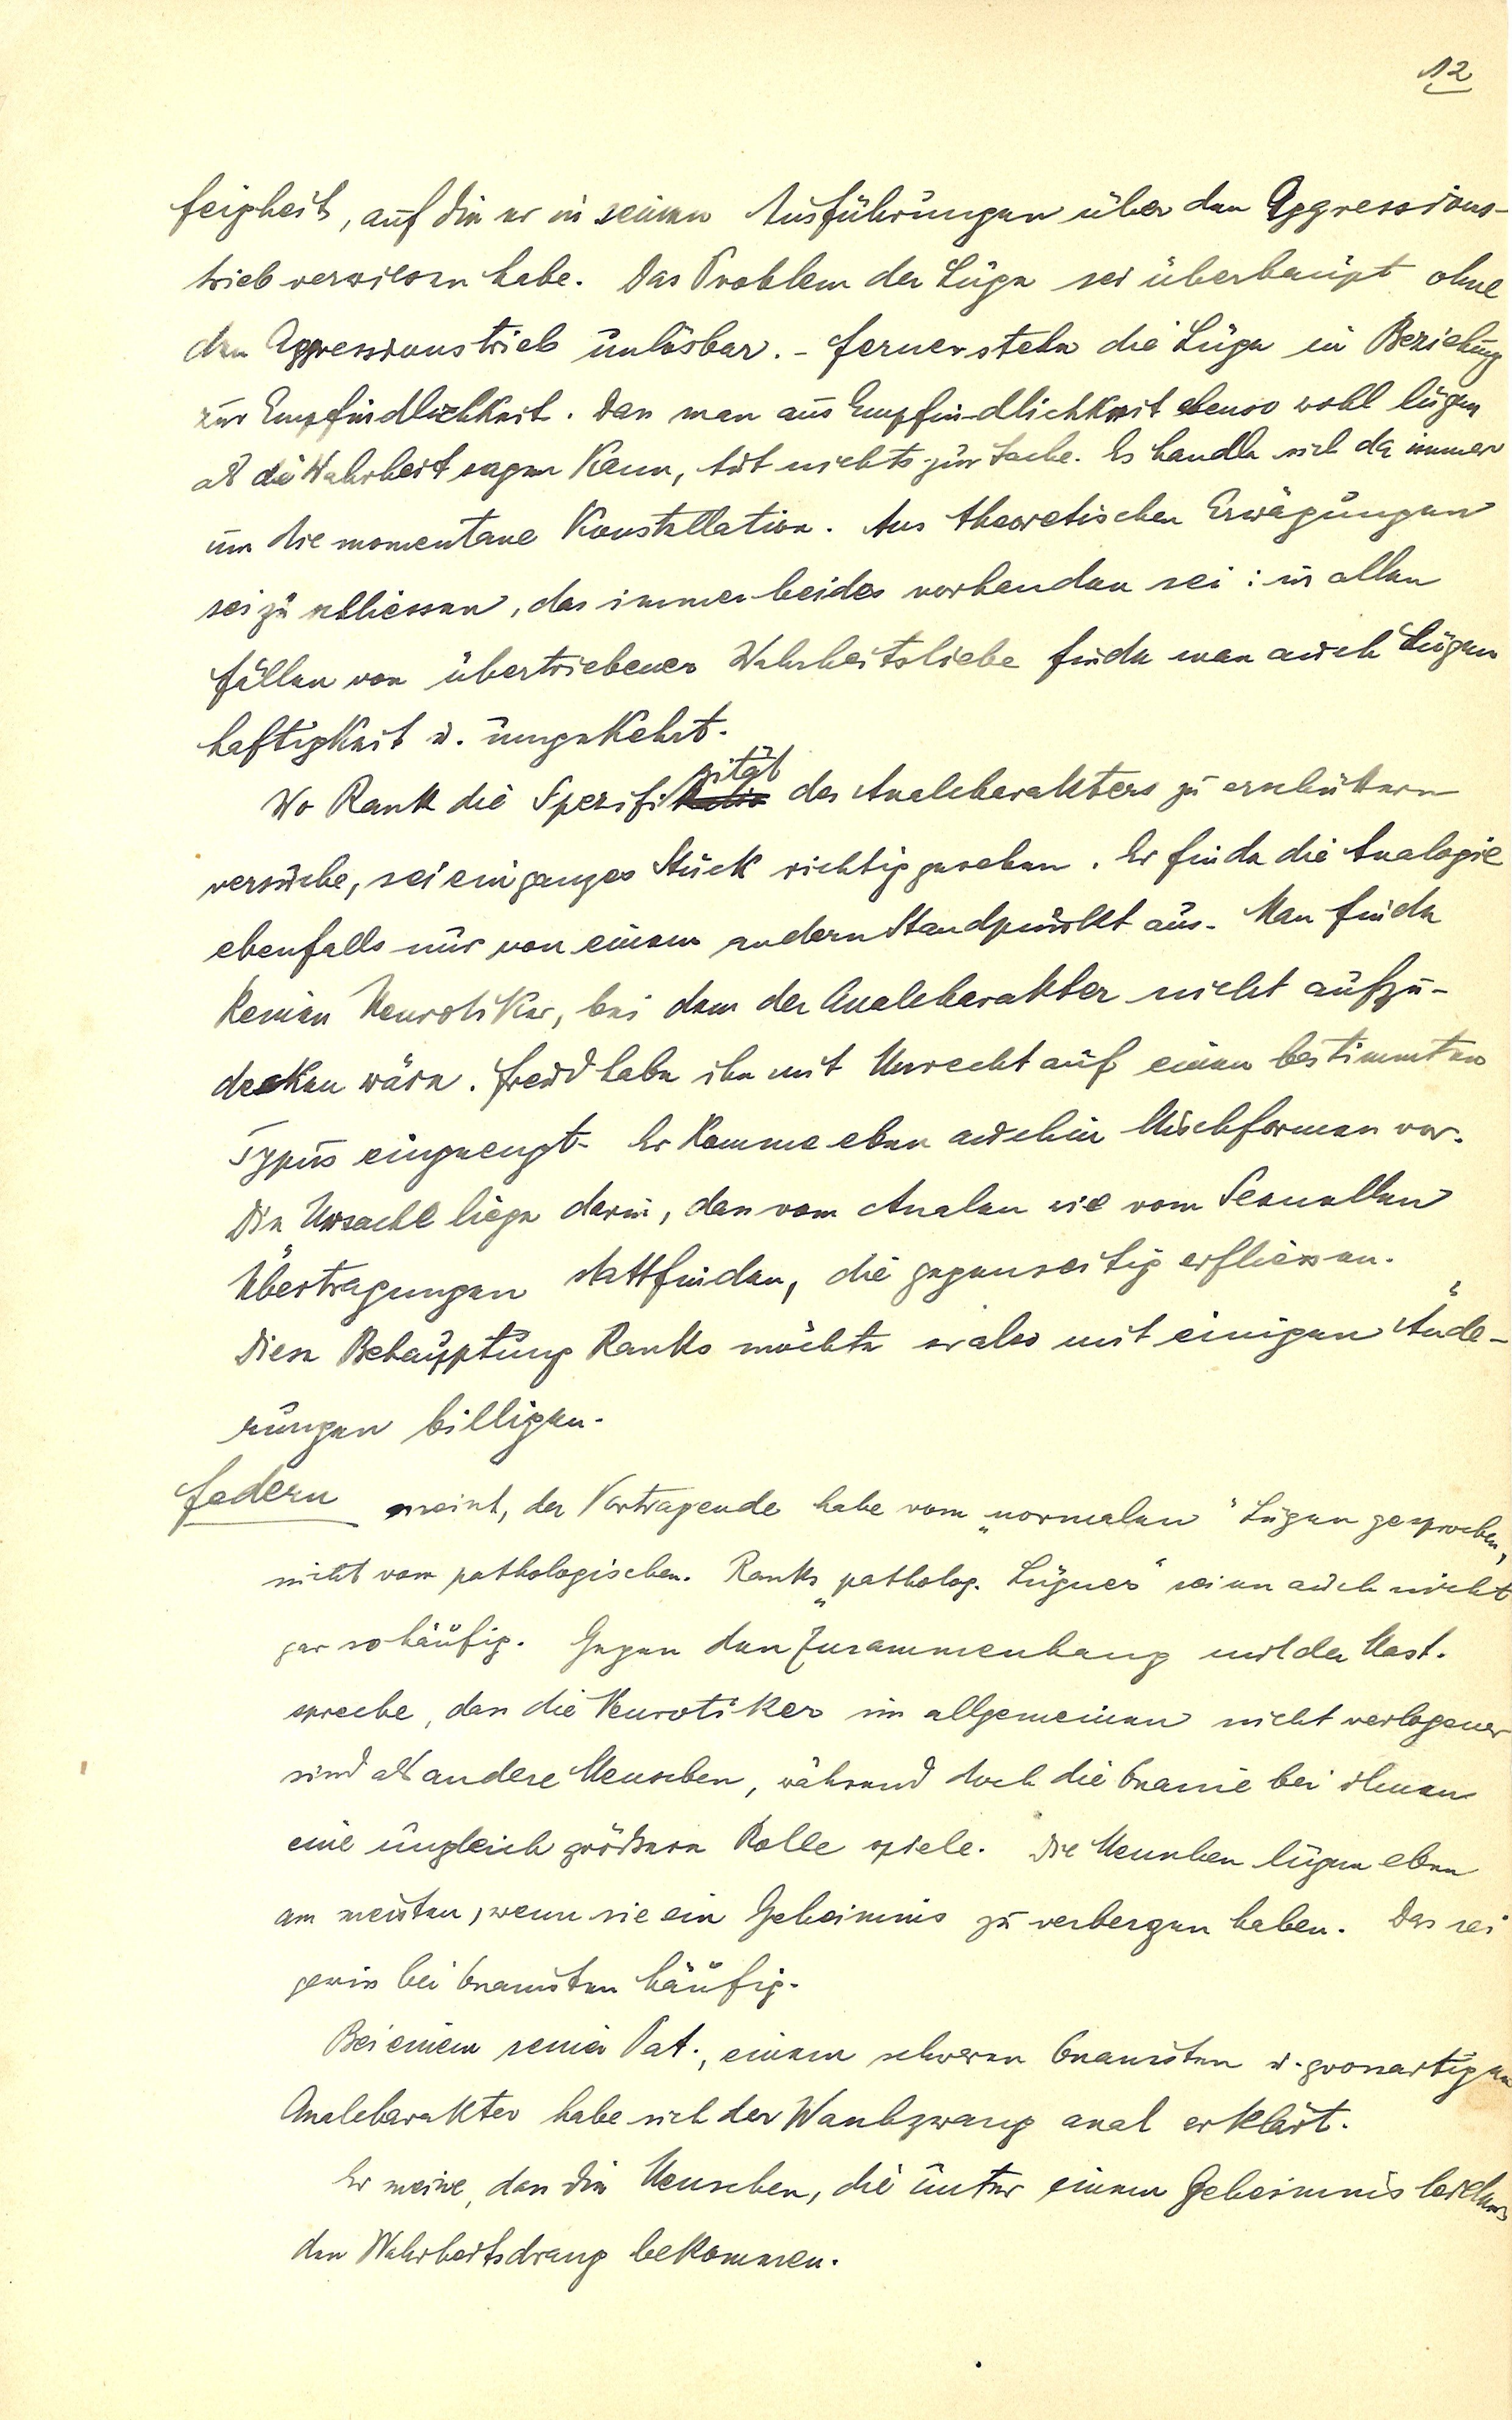 12
feigheit, auf die er in seinen Ausführungen über den Aggressions-
trieb verwiesen habe. Das Problem der Lüge sei überhaupt ohne
den Aggressionstrieb unlösbar. - Ferner stehe die Lüge in Beziehung
zur Empfindlichkeit. Dass man aus Empfindlichkeit ebenso wohl lügen
als die Wahrheit sagen kann, tut nichts zur Sache. Es handle sich da immer
um die momentane Konstellation. Aus theoretischen Erwägungen
sei zu schliessen, dass immer beides vorhanden sei: in allen
Fällen von übertriebener Wahrheitsliebe finde man auch Lügen
haftigkeit u. umgekehrt.
Wo Rank die Spezifizität des Analcharakters zu erschüttern
versuche, sei ein ganzes Stück richtig gesehen. Er finde die Analogie
ebenfalls nur von einem andern Standpunkt aus. Man finde
keinen Neurotiker, bei dem der Analcharakter nicht aufzu-
decken wäre. Freud habe ihn mit Unrecht auf einen bestimmten
Typus eingeengt. Er komme eben auch in Mischformen vor.
Die Ursache liege darin, dass vom Analen wie vom Sexuellen
Übertragungen stattfinden, die gegenseitig erfliessen.
Diese Behauptung Ranks möchte er also mit einigen Ände-
rungen billigen.
Federn meint, der Vortragende habe vom „normalen" Lügen gesprochen,
nicht vom pathologischen. Ranks „patholog. Lügner" seien auch nicht
gar so häufig. Gegen den Zusammenhang mit der Mast.
spreche, dass die Neurotiker im allgemeinen nicht verlogener
sind als andere Menschen, während doch die Onanie bei ihnen
eine ungleich größere Rolle spiele. Die Menschen lügen eben
am meisten, wenn sie ein Geheimnis zu verbergen haben. Das sei
gewiss bei Onanisten häufig.
Bei einem seiner Pat., einem schweren Onanisten u. grossartigen
Analcharakter habe sich der Waschzwang anal erklärt.
Er meine, dass die Menschen, die unter einem Geheimnis leiden
den Wahrheitsdrang bekommen.